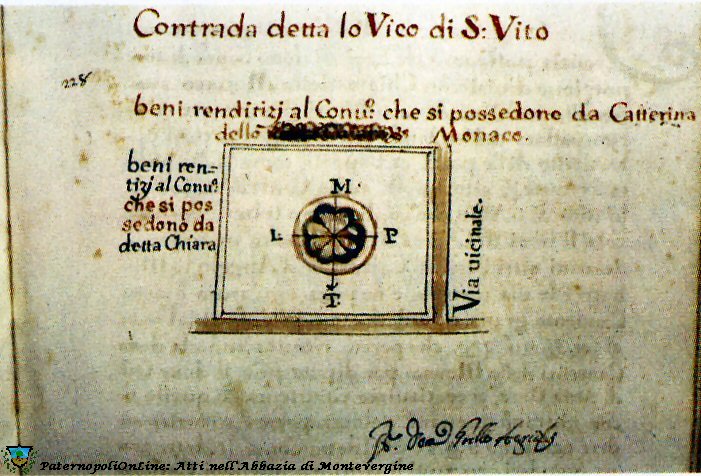 Contrada detta lo Vico di S: Vito
228
beni renditizj al Conu.º che si possedono da Catterina
dello Monaco.
beni ren=
titzj al Conu.º
che si pos
sedono da
detta Chiara
M
L P
T.
Via uicinale.
PaternopoliOnLine: Atti nell'Abbazia di Montevergine